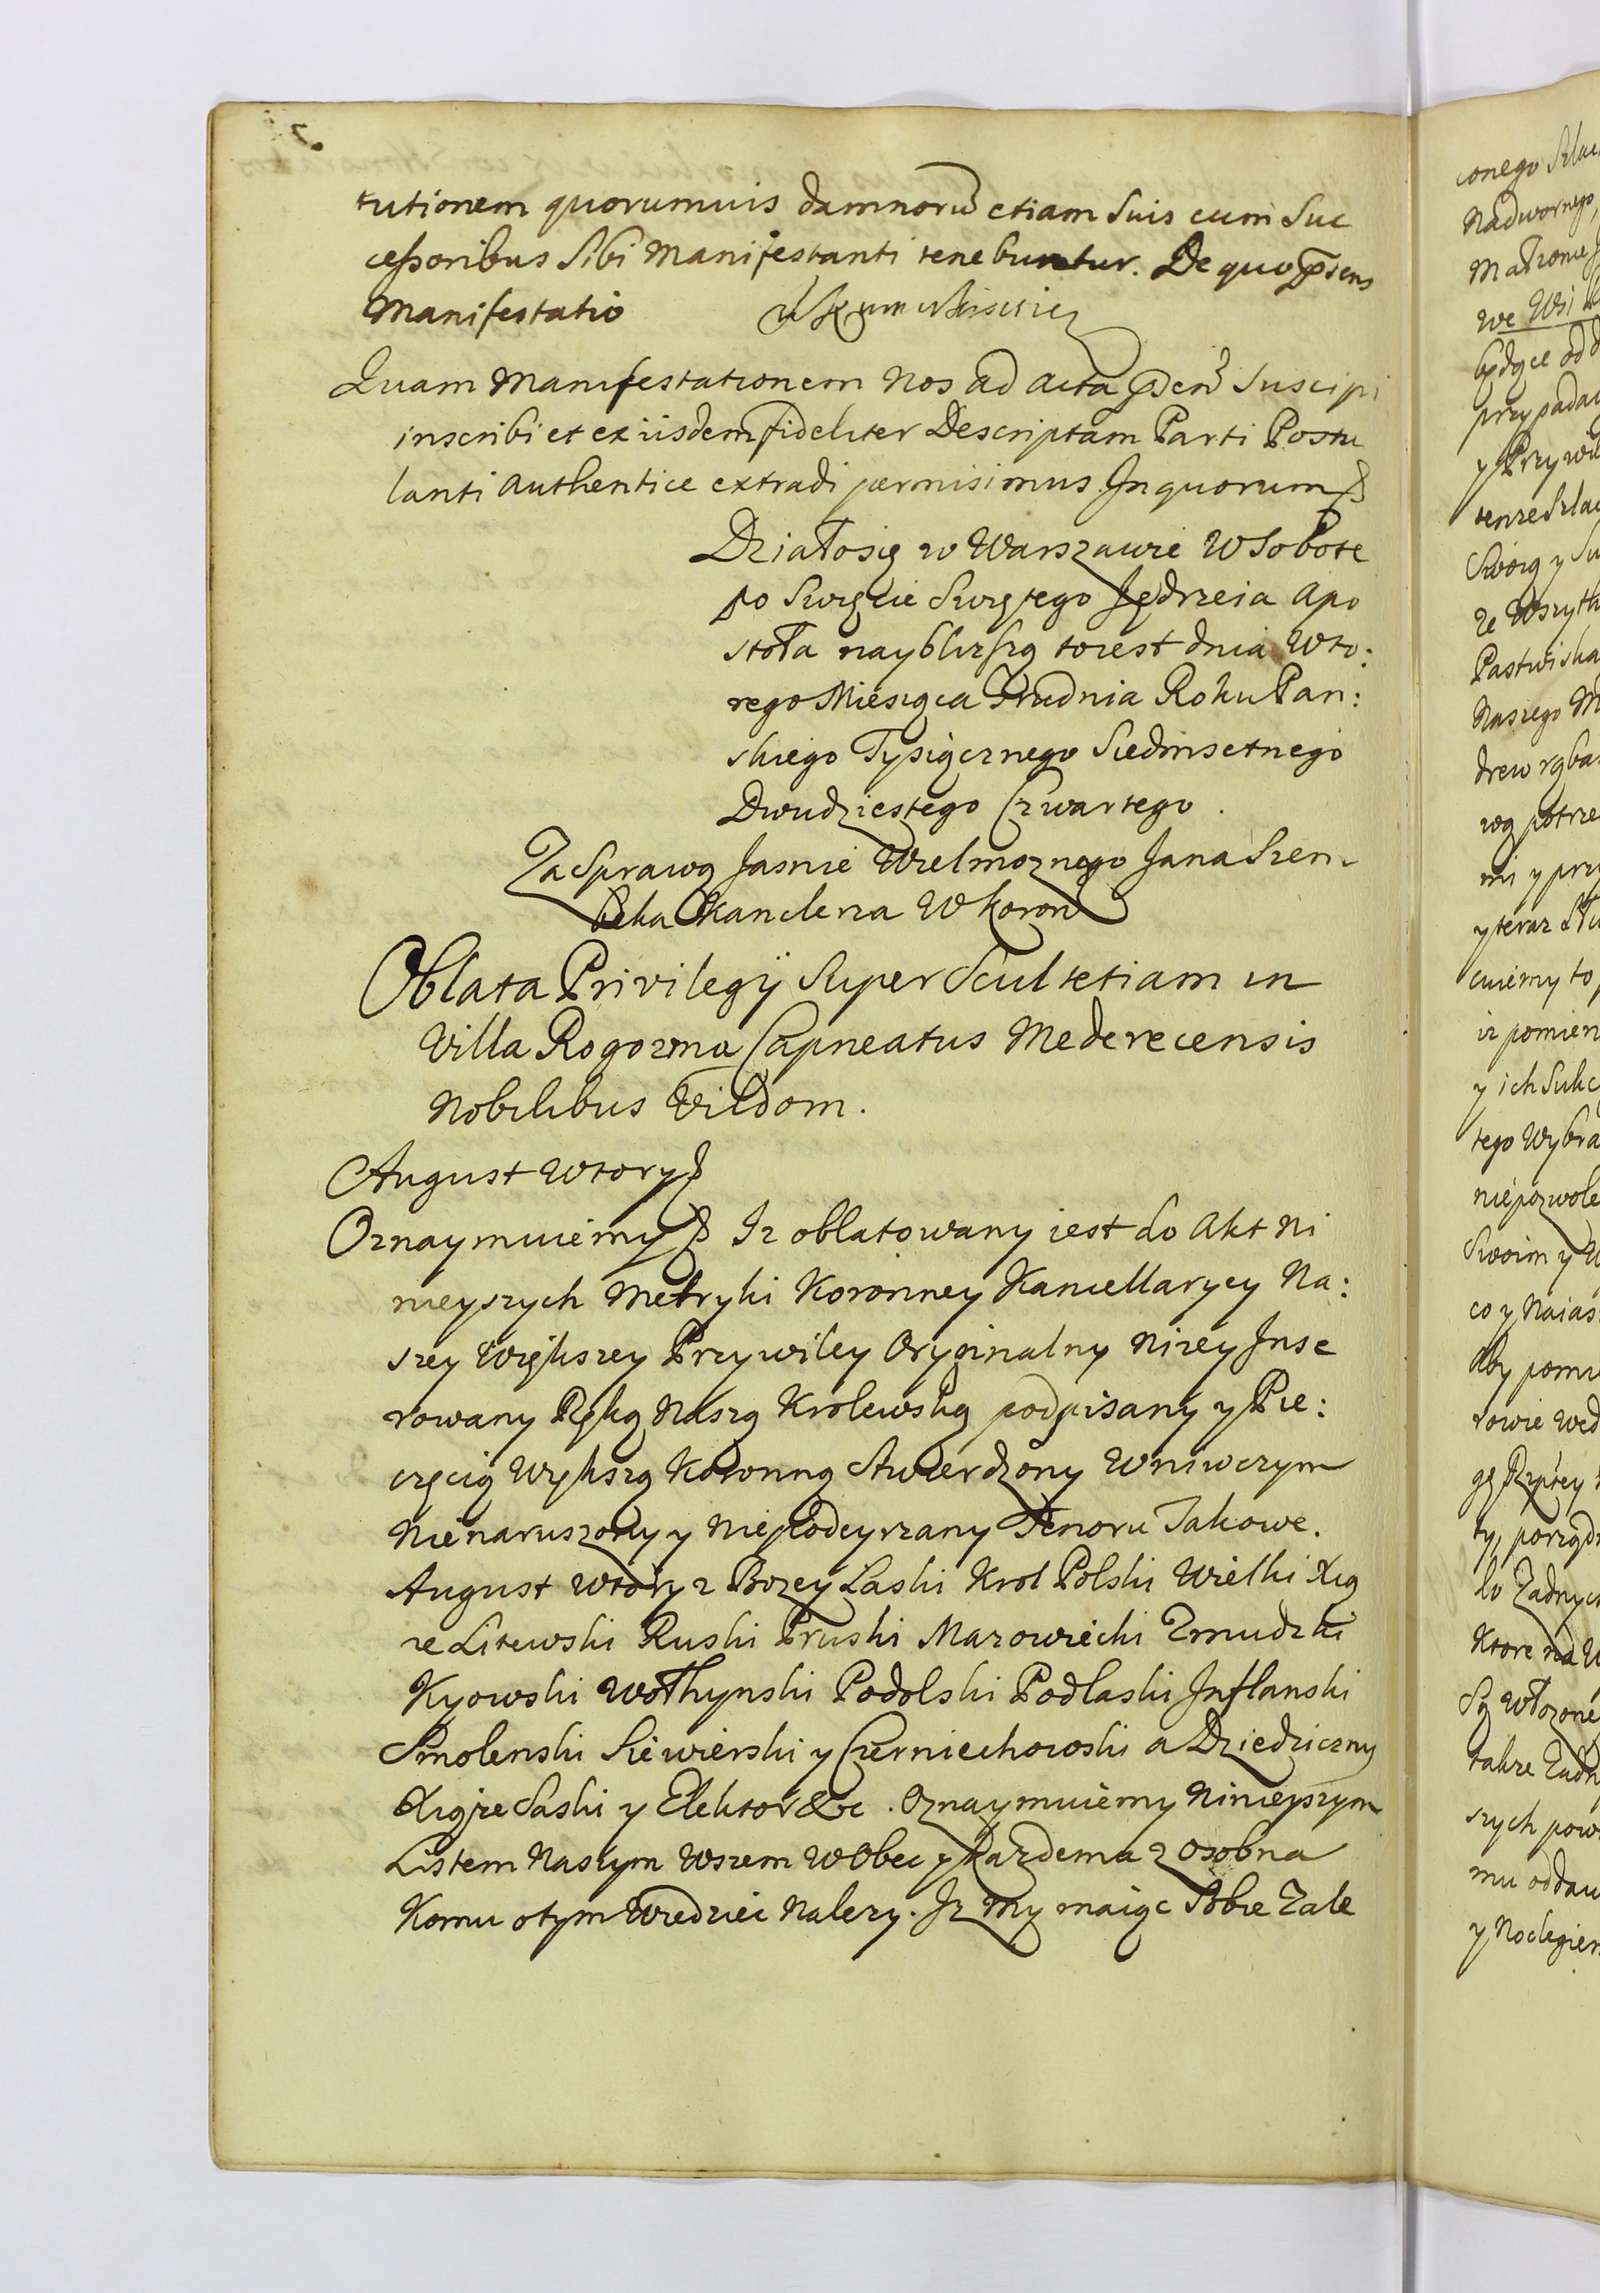 tutionem quorumuis damnorũ etiam Suis cum Suc
cessoribus Sibi Manifestanti tenebuntur. De quo p̃sens
Manifestatio
Quam Manifestationem Nos ad Acta p̃sen Suscipi
inscribi et ex iisdem fideliter Descriptam Parti Postu
lanti Authentice extradi permisimus. In quorum
Działosię w Warszawie W Sobotę
po Swięcie Swiętego Jędrzeia Apo
stoła nayblizszą toiest dnia Wto:
rego Miesiąca Grudnia Roku Pan:
skiego Tysiącznego Siedmsetnego
Dwudziestego Czwartego.
Za Sprawą Jasnie Wielmoznego Jana Szem
beka Kanclerza W Koron
Oblata Privilegÿ Super Scultetiam in
Villa Rogozno Capneatus Mederecensis
Nobilibus Wildom.
August Wtory
Oznaymuiemy Iz oblatowany iest do Akt Ni
nieyszych Metryki Koronney Kancellaryey Na:
szey Większey Przywiley Oryginalny Nizey Inse
rowany Ręką Naszą Krolewską podpisany y Pie:
częcią Większą Koronną Stwierdzony Wniwczym
Nienaruszony y Niepodeyrzany Tenoru Takowe.
August Wtory z Bozey Łaski Krol Polski Wielki Xią
ze Litewski Ruski Pruski Mazowiecki Zmudzki
Kyowski Wołhynski Podolski Podlaski Inflanski
Smolenski Siewierski y Czerniechowski a Dziedziczny
Xiąze Saski y Elektor &c. Oznaymuiemy Ninieyszym
Listem Naszym Wszem Wobec y Kazdema z Osobna
Komu otym Wiedziec Nalezy. Iz My maiąc Sobie Zale